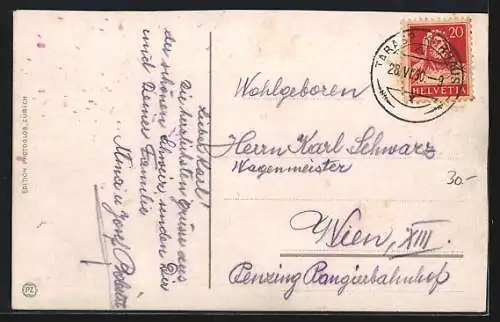 Lieber Karl!
Die herzlichsten Grüsse aus
der schönen Schweiz senden Dir
und Deiner Familie
Mina u. Josef
Wohlgeboren
Herrn Karl Schwarz
Wagenmeister
Wien, XIII.
Penzing Rangierbahnhof
20
HELVETIA
TARASP
30-
EDITION PHOTOGLOB, ZÜRICH
PZ